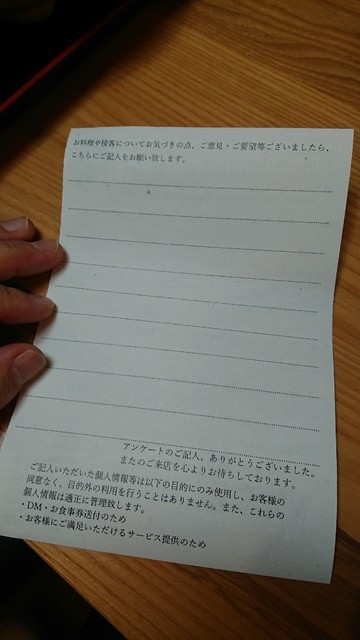 お料理や接客についてお気づきの点、ご意見・ご要望等ございましたら、
こちらにご記入をお願い致します。
アンケートのご記入、ありがとうございました。
またのご来店を心よりお待ちしております。
ご記入いただいた個人情報等は以下の目的にのみ使用し、お客様の
同意なく、目的外の利用を行うことはありません。また、これらの
個人情報は適正に管理致します。
・DM・お食事券送付のため
・お客様にご満足いただけるサービス提供のため